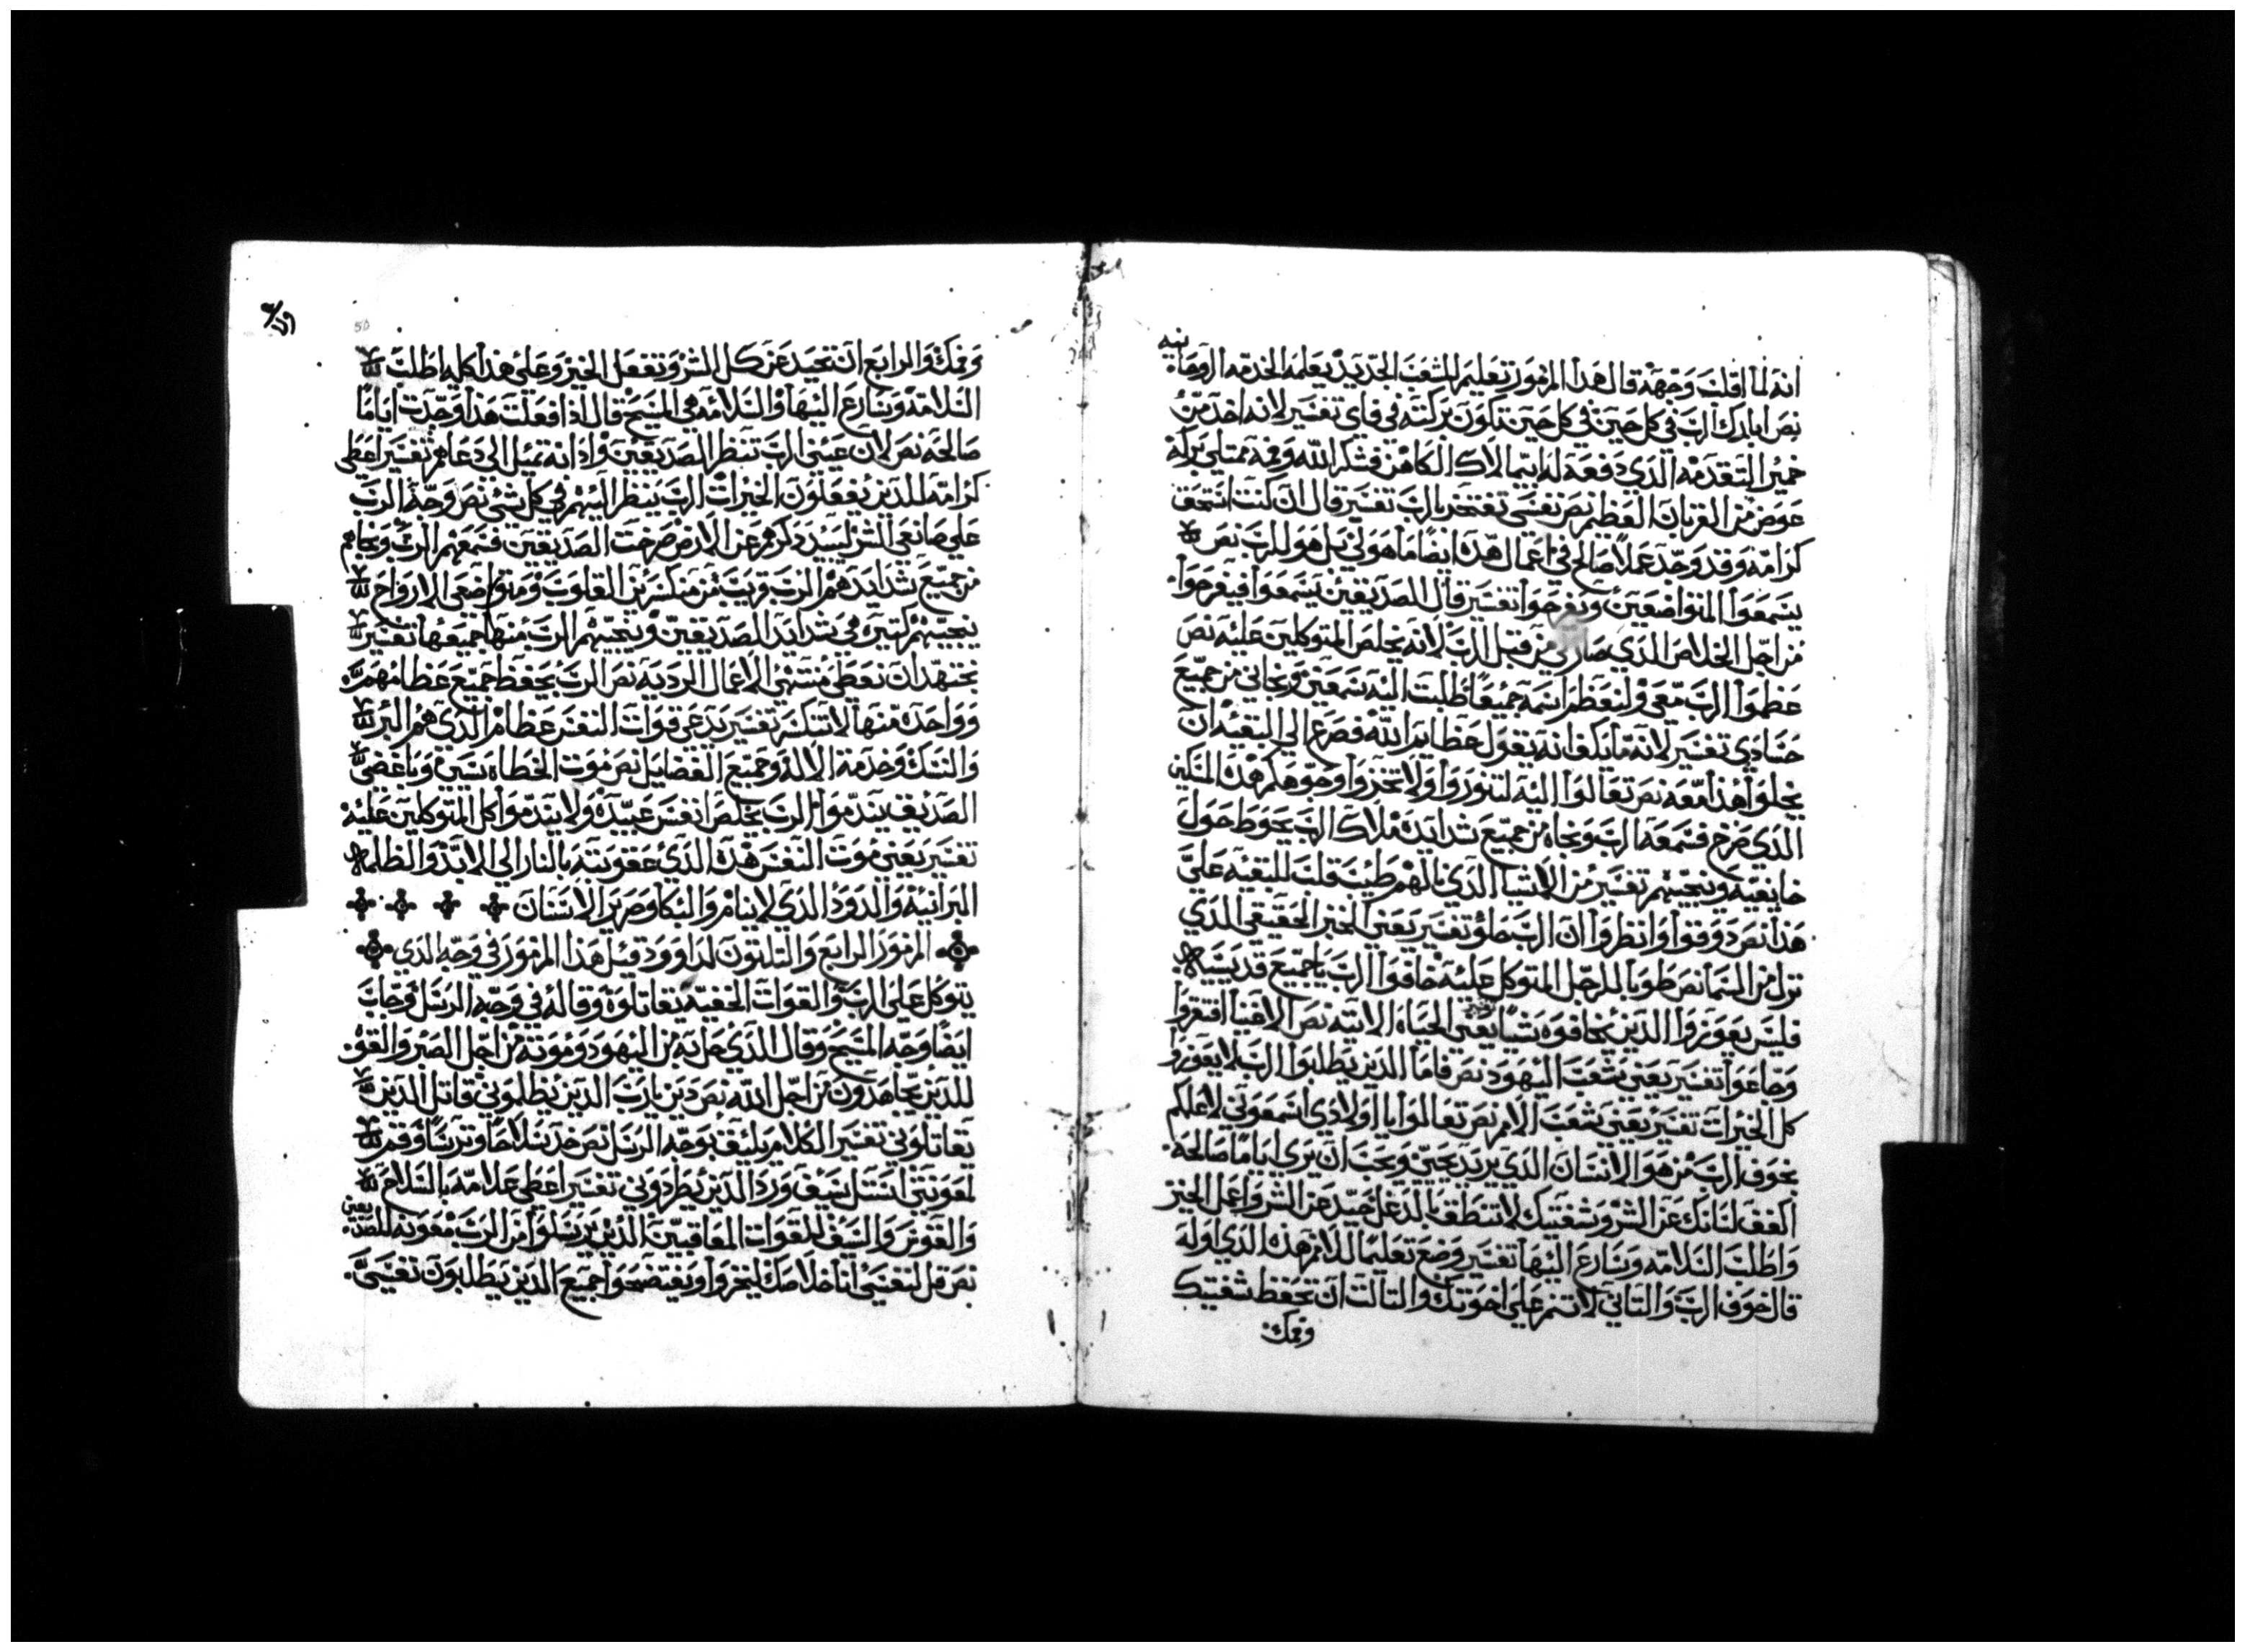 انه لما اقلب وجهه قال هذا المزمور تعليم للشعب الجديد يعلمه الخدمه الروحانيه
نص ابارك الرب في كل حين في كل حين تكون بركته في فاي تفسير لانه اخد من
خمير التقدمه الدي دفعه له ابيمالاك الكاهن فشكر الله وفمه ممتلي بركه
عوض من القربان العظيم نص نفسي تفتخر بالرب تفسير قال ان كنت استحق
كرامه وقد وجد عملا صالح في اعمال هده ايضا ما هو لي بل هو للرب نص
يسمعوا المتواضعين ويفرحوا تفسير قال الصديقين يسمعوا فيفرحوا
من اجل الخلاص الدي صار لي من قبل الرب لانه يخلص المتوكلين عليه نص
عظموا الرب معي ولنعظم اسمه جميعا طلبت اليه سمعني ونجاني من جميع
حسادي تفسير لانه ما يكفا انه يقول عظايم الله فصرع الي البقيه ان
يحلوا هدا معه نص تعالوا اليه لتنوروا ولا تخزوا وجوهكم هدا المسكين
الدي صرخ فسمعه الرب ونجاه من جميع شدايده ملاك الرب يحوط حول
خايفيه وينجيهم تفسير من الاشيا الدي نالهم طيبت قلب للبقيه علي
هدا نص دوقوا وانظروا ان الرب حلو تفسير يعني الخبز الحقيقي الدي
نزل من السما نص طوبا للرجل المتوكل عليه خافوا الرب يا جميع قديسيه
فليس يعوزوا الدين يخافوه شيا يعني الحياه الاتيه نص الاغنيا افتقروا
وجاعوا تفسير يعني شعب اليهود نص فاما الدين يطلبوا الرب لا يعوزوا
كل الخيرات تفسير يعني شعب الامم نص تعالوا يا اولادي اسمعوني لاعلمكم
بخوف الرب من هو الانسان الدي يريد يحيي ويحب ان يري اياما صالحه
اكفف لسانك عن الشر وشفتيك لا تنطق بالدغل حيد عن الشر واعمل الخير
واطلب السلامه وسارع اليها تفسير وضع تعليما للامم هده الدي اوله
قال خوف الرب والتاني لا تنم علي اخوتك والتالت ان تحفظ شفتيك
وفمك
50
وفمك والرابع ان تحيد عن كل الشر وتفعل الخير وعلي هدا كله اطلب
السلامه وسارع اليها والسلامه هي المسيح قال اد افعلت هدا وجدت اياما
صالحه نص لان عيني الرب تنظر الصديقين وادانه تميل الي دعاهم تفسير اعطي
كرامه للدين يفعلون الخيرات الرب ينظر اليهم في كل شي نص وجه الرب
علي صانعي الشر ليبيد دكرهم عن الارض صرخت الصديقين فسمعهم الرب ونجاهم
من جميع شدايدهم الرب قريب من منكسرين القلوب ومتواضعي الارواح
ينجيهم كتيره هي شدايد الصديقين وينجيهم الرب منها جميعها تفسير
نجتهد ان نعطي منتهي الاعمال الرديه نص الرب يحفظ جميع عظامهم
وواحده منها لا تنكسر تفسير يدعي قوات النفس عظام الدي هم البر
والنسك وخدمة الاله وجميع الفضايل نص موت الخطاه شرير وباغضي
الصديق يندموا الرب يخلص انفس عبيده ولا يندموا كل المتوكلين عليه
تفسير يعني موت النفس هده الدي عقوبته بالنار الي الابد والظلمه
البرانيه والدود الدي لا ينام والبكا وصرير الاسنان
المزمور الرابع والتلتون لداوود قيل هدا المزمور في وجه الدي
يتوكل علي الرب والقوات الخفيه تقاتلوه وقاله في وجه الرسل وجاب
ايضا وجه المسيح وقال الدي حل به من اليهود وموته من اجل الصبر والقوه
للدين يجاهدون من اجل الله نص دين يارب الدين يظلموني قاتل الدين
يقاتلوني تفسير الكلام يليق بوجه الرسل نص خد سلاحا وترسا وقم
لمعونتي استل سيف ورد الدين يطردوني تفسير اعطي علامه بالسلاح
والقوس والسيف للقوات المعاقبين الدين يرسلوا من الرب معونه للصديقين
نص قل لنفسي انا خلاصك ليخزوا ويفتضحوا جميع الدين يطلبون نفسي